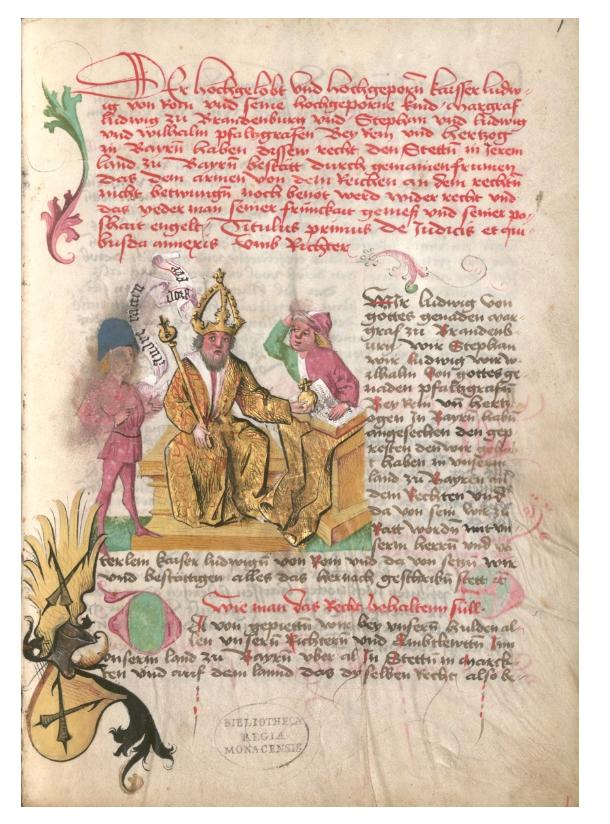 1
Der hochgelobt vnd hochgeporñ kaisser ludw-
ig von Rom vnd seine hochgeporne kind margraf
ludwig zu Brandenburg vnd Stephan vnd ludwig
vnd wilhalm pfaltzgrafen Bey Rein vnd hertzog
in Bayrñ haben dissew recht den Stettñ in Jerem
land zu Bayrñ bestätt durch gemainen frumen
das dem armen von dem Reichen an dem rechtñ
nicht betwungñ noch benot werd wider recht vnd
das yeder man seiner geniess vnd seiner po-
shait engelt Titulus primus de Judicis et qui-
busda annexis Vmb Richter
Wir ludwig von
gottes genaden mar-
graf zu Brandenb-
urg wir Stephan
wir ludwig wir w-
ilhalm von gottes ge
naden pfaltzgrafñ
Bey Rein vñ hertz-
ogen in Bayrñ habñ
angesechen den gep
resten den wir
t haben in vnserm
land zu Bayrñ an
dem Rechten vnd
da von sein wir ze
Ratt wordñ mit vn
serm herrñ vnd va
terlem kaiser ludwigñ von Rom vnd da von setzñ wir
vnd bestättigen alles das hernach geschribñ stett
Wie man das Recht behaltenn süll
von gepiettñ wir bey vnsern hulden al-
len vnsern Richtern vnd Ambtlewttñ Jnn
vnserm land zu Bayrñ vber al Jn Stettñ in marck-
ten vnd auf dem lannd das dy selben Recht also be-
BIBLIOTHECA
REGIA
MONACENSIS